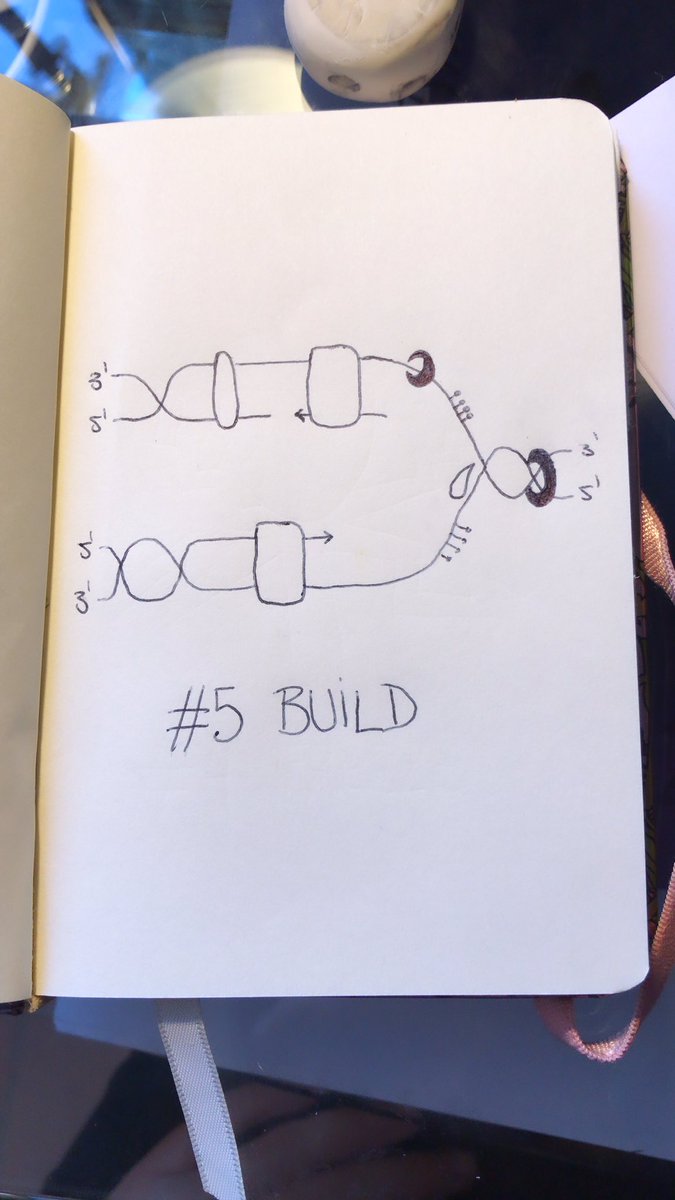 3'
5'
3'
5'
5'
3'
#5 BUiLD